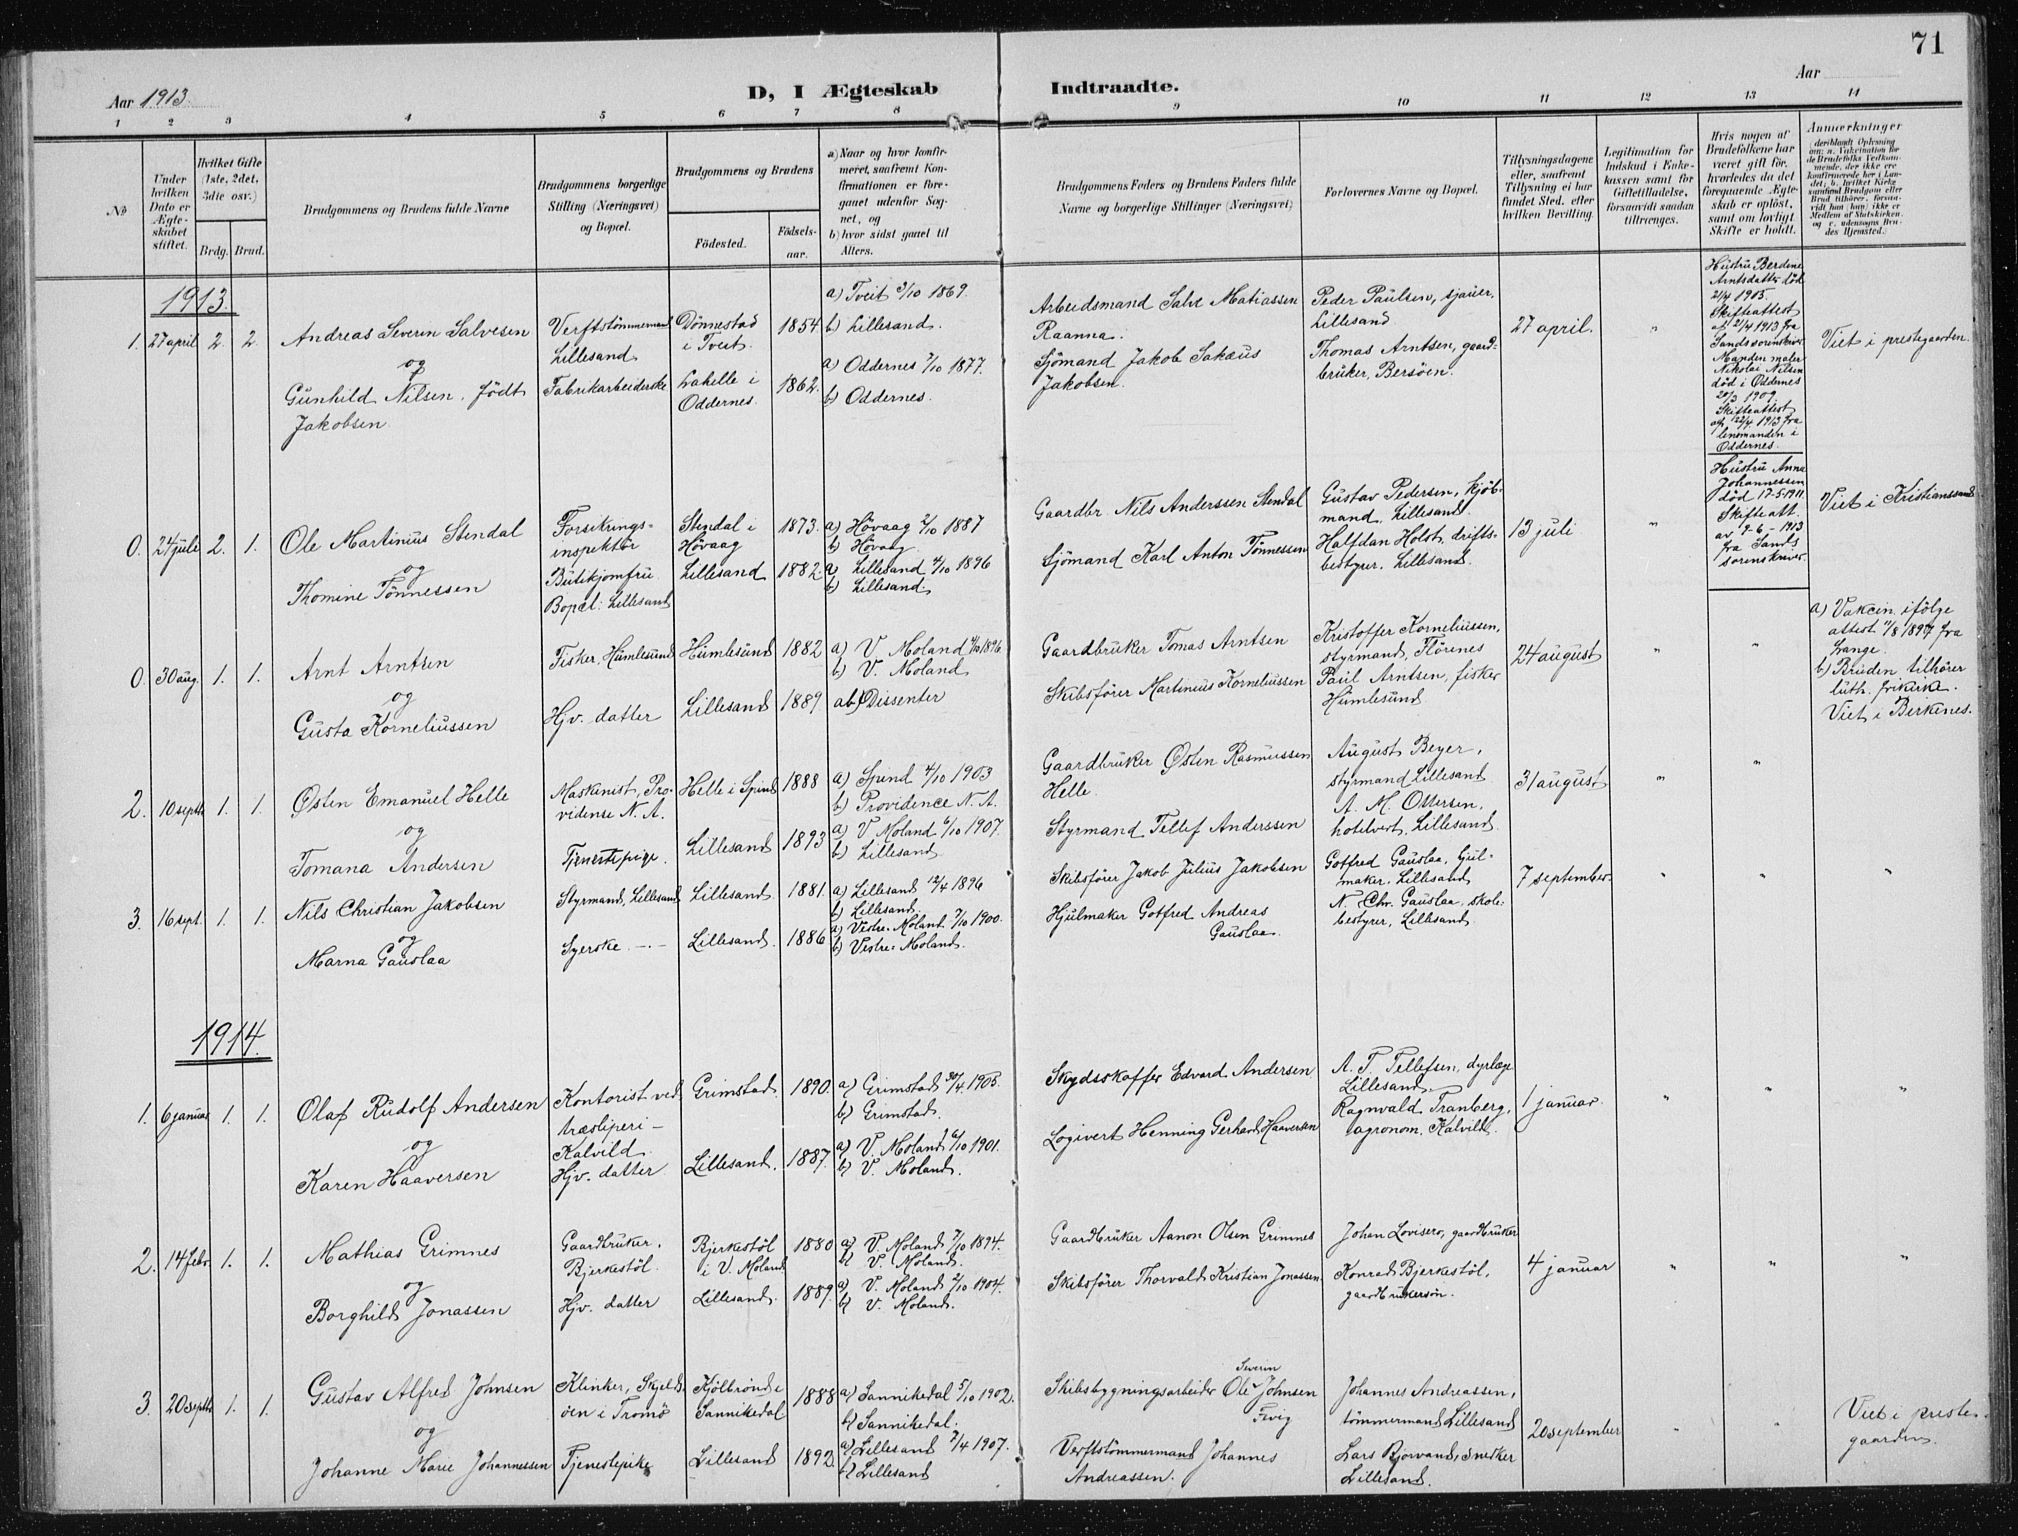 71
Aar 1913.
D, I Ægteskab Indtraadte.
Aar
1 2 3 4 5 6 7 8 9 10 11 12 13 14
No
Under hvilken Dato er Ægteskabet stiftet.
Hvilket Gifte (1ste, 2det, 3die osv.)
Brdg. Brud.
Brudgommens og Brudens fulde Navne
Brudgommens borgerlige Stilling (Næringsvei) og Bopæl.
Brudgommens og Brudens
Födested.
Födselsaar.
a) Naar og hvor konfirmeret, saafremt Konfirmationen er foregaaet udenfor Sognet, og
b) hvor sidst gaaet til Alters.
Brudgommens Faders og Brudens Faders fulde Navne og borgerlige Stillinger (Næringsvei)
Forlovernes Navne og Bopæl.
Tillysningsdagene eller, saafremt Tillysning ei har fundet Sted, efter hvilken Bevilling.
Legitimation for Indskud i Enkekassen samt for Giftetilladelse, forsaavidt saadan tiltrænges.
Hvis nogen af Brudefolkene har været gift før, hvorledes da det foregaaende Ægteskab er oplöst, samt om lovligt Skifte er holdt.
Anmærkninger
1913.
1. 27 april 2. 2.
Andreas Severin Salvesen
og
Gunhild Nilsen, født
Jakobsen
Verftstömmermand
Lillesand
Fabrikarbeiderske
Dönnestad
i Tveit.
Lahelle i
Oddernes.
1854
1862
a) Tveit 3/10 1869.
b) Lillesand.
a) Oddernes 7/10 1877.
b) Oddernes.
Arbeidsmand Salve Matiassen
Raanna.
Sjömand Jakob Sakæus
Jakobsen.
Peder Paulsen, sjauer,
Lillesand
Thomas Arntsen, gaard-
bruker, Bersöen.
27 april.
"
Hustru Berdine
Arntsdatter död
21/4 1905.
Skifteattest
af 21/4 1913 fra
Sandssorenskriver
Manden maler
Nikolai Nilsen
död i Oddernes
20/3 1909.
Skifteattest
af 22/4 1913 fra
lensmanden i
Oddernes.
Viet i prestegaarden.
0. 24 juli 2. 1.
Ole Martinius Stendal
og
Thomine Tönnessen
Forsikrings-
inspektör
Butikjomfru
Bopæl: Lillesand
Stendal i
Hövaag
Lillesand
1873.
1882.
a) Hövaag 2/10 1887
b) Hövaag
a) Lillesand 4/10 1896
b) Lillesand
Gaardbr. Nils Anderssen Stendal
Sjömand Karl Anton Tönnessen
Gustav Pedersen, kjöb-
mand, Lillesand
Halfdan Holst, drifts-
bestyrer. Lillesand.
13 juli
"
Hustru Anna
Johannessen
död 17-5-1911.
Skifteatt.
av 9-6-1913
fra Sands
sorenskriver.
Viet i Kristianssand
0. 30 aug. 1. 1.
Arnt Arntsen
og
Gusta Korneliussen
Fisker, Humlesund
Hjv. datter
Humlesund
Lillesand
1882
1889.
a) V. Moland 4/10 1896
b) V. Moland
ab) Dissenter
Gaardbruker Tomas Arntsen
Skibsförer Martinius Korneliussen
Kristoffer Korneliussen,
styrmand, Flörenes
Paul Arntsen, fisker
Humlesund
24 august
"
"
a) Vakcin. ifölge
attest 11/8 1897 fra
Frange.
b) Bruden tilhörer
luth. frikirke.
Viet i Birkenes.
2. 10 septbr 1. 1.
Østen Emanuel Helle
og
Tomana Andersen
Maskinist, Pro-
vidense N. A.
Tjenestepige.
Helle i Spind
Lillesand
1888
1893
a) Spind 4/10 1903
b) Providence N. A.
a) V. Moland 6/10 1907.
b) Lillesand
Gaardbruker Østen Rasmussen
Helle.
Styrmand Tellef Anderssen
August Beyer,
styrmand Lillesand
A. M. Ottersen,
hotelvert, Lillesand
31 august
"
"
3. 16 sept. 1. 1.
Nils Christian Jakobsen
og
Marna Gauslaa
Styrmand, Lillesand
Syerske. -"-
Lillesand
Lillesand.
1881.
1886
a) Lillesand 12/4 1896
b) Lillesand.
a) Vestre-Moland 7/10 1900.
b) Vestre-Moland.
Skibsförer Jakob Julius Jakobsen
Hjulmaker Gotfred Andreas
Gauslaa.
Gotfred Gauslaa, hjul-
maker, Lillesand
N. Chr. Gauslaa, skole-
bestyrer, Lillesand.
7 september.
"
"
"
1914.
1. 6 januar 1. 1.
Olaf Rudolf Andersen
og
Karen Haaversen
Kontorist ved
træsliperi -
Kalvild.
Hjv. datter
Grimstad
Lillesand.
1890.
1887.
a) Grimstad 30/4 1905.
b) Grimstad.
a) V. Moland 6/10 1901.
b) V. Moland.
Skydsskaffer Edvard Andersen
Logivert Henning Gerhard Haaversen
A. T. Tellefsen, dyrlæge
Lillesand.
Ragnvald Tranberg,
agronom, Kalvild.
1 januar.
"
"
"
2. 14 febr. 1. 1.
Mathias Grimnes
og
Borghild Jonassen
Gaardbruker,
Bjerkestöl.
Hjv. datter
Bjerkestöl
i V. Moland
Lillesand.
1880
1889.
a) V. Moland 7/10 1894.
b) V. Moland.
a) V. Moland 2/10 1904.
b) V. Moland.
Gaardbruker Aanon Olsen Grimnes
Skibsförer Thorvald Kristian Jonassen
Johan Lovisero, gaardbruker
Konrad Bjerkestöl,
gaardbrukersön.
4 januar
"
"
"
3. 20 septbr 1. 1.
Gustav Alfred Johnsen
og
Johanne Marie Johannessen
Klinker, Skjelds
öen i Tromö
Tjenestepike
Kjölbrönd i
Sannikedal
Lillesand
1888
1892
a) Sannikedal 5/10 1902.
b) Sannikedal.
a) Lillesand 7/4 1907.
b) Lillesand
Severin
Skibsbygningsarbeider Ole Johnsen
Tvig
Verftstömmermand Johannes
Andreassen.
Johannes Andreassen,
tömmermand Lillesand
Lars Bjorvand, snedker
Lillesand.
20 september
"
"
Viet i preste-
gaarden.